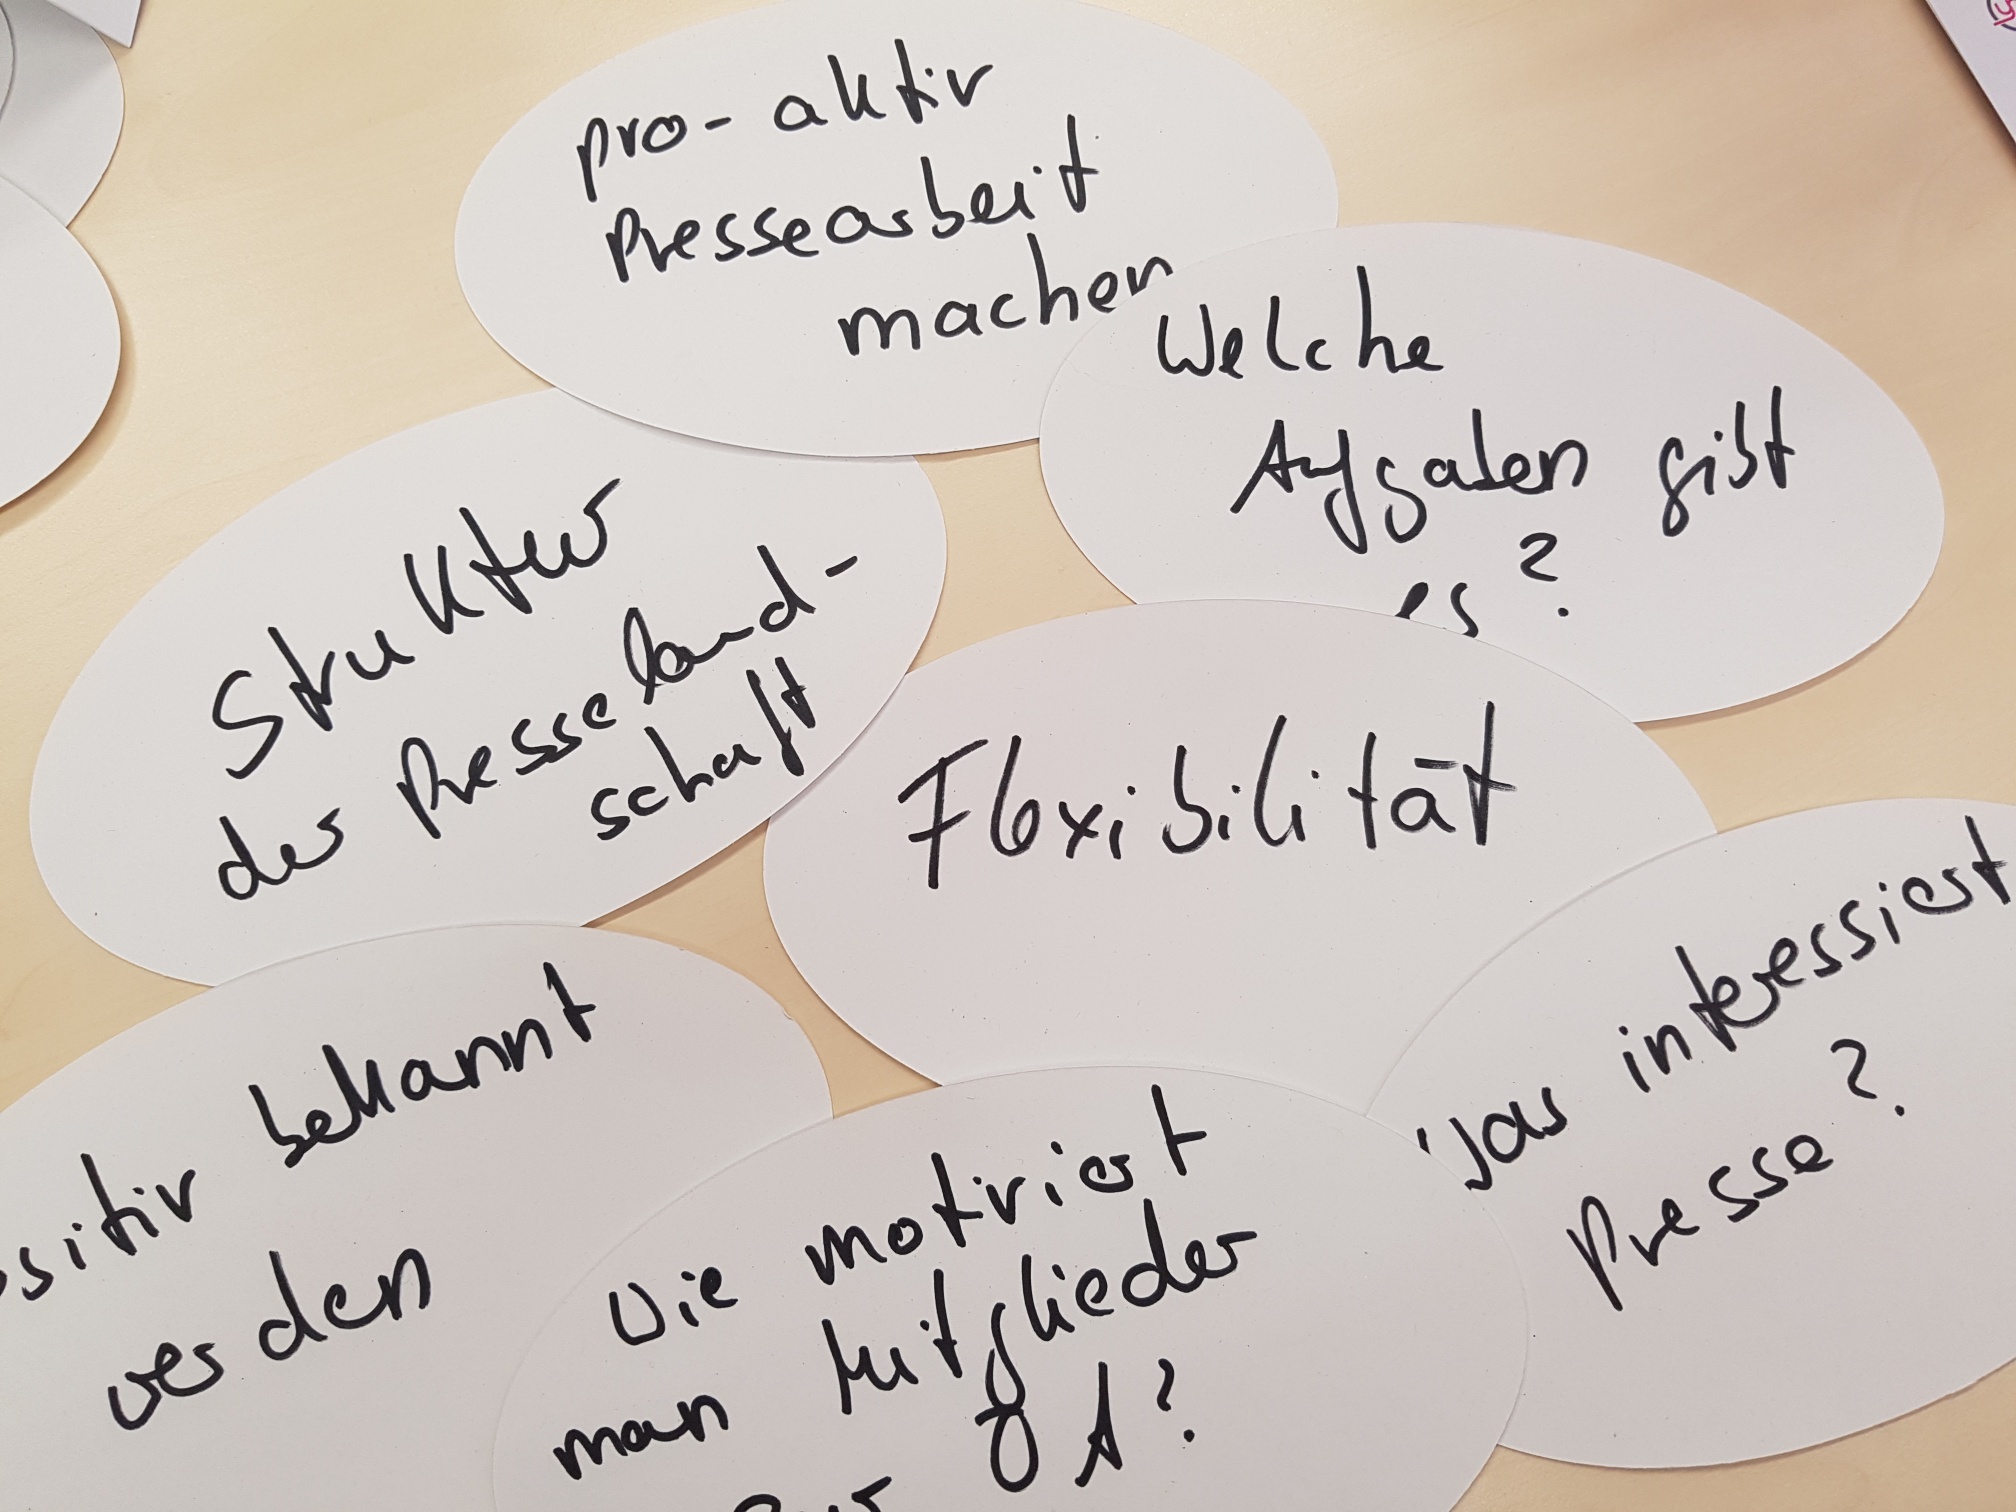 pro-aktiv
Pressearbeit
machen
Welche
Aufgaben gibt
es?
Struktur
der Presseland-
schaft
Flexibilität
Was interessiert
Presse?
bekannt
werden
Wie motiviert
man Mitglieder
ÖA?